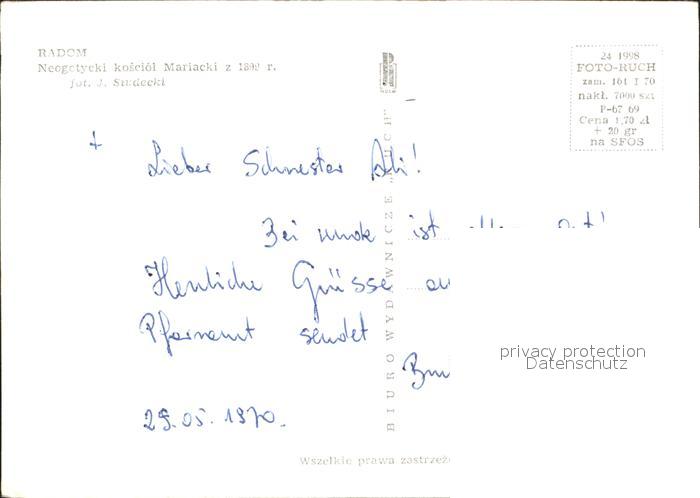 RADOM
Neogotycki kościół Mariacki z 1899 r.
fot. J. Siudecki
24 1998
FOTO-RUCH
zam. 161 I 70
nakł. 7000 szt
P-67 69
Cena 1,70 zł
+ 20 gr
na SFOS
+
Lieber Schwester Adi!
Bei ist
Herzliche Grüsse
Pfarramt sendet
29.05.1970.
BIURO WYDAWNICZE „RUCH"
Wszelkie prawa zastrzeż
privacy protection
Datenschutz